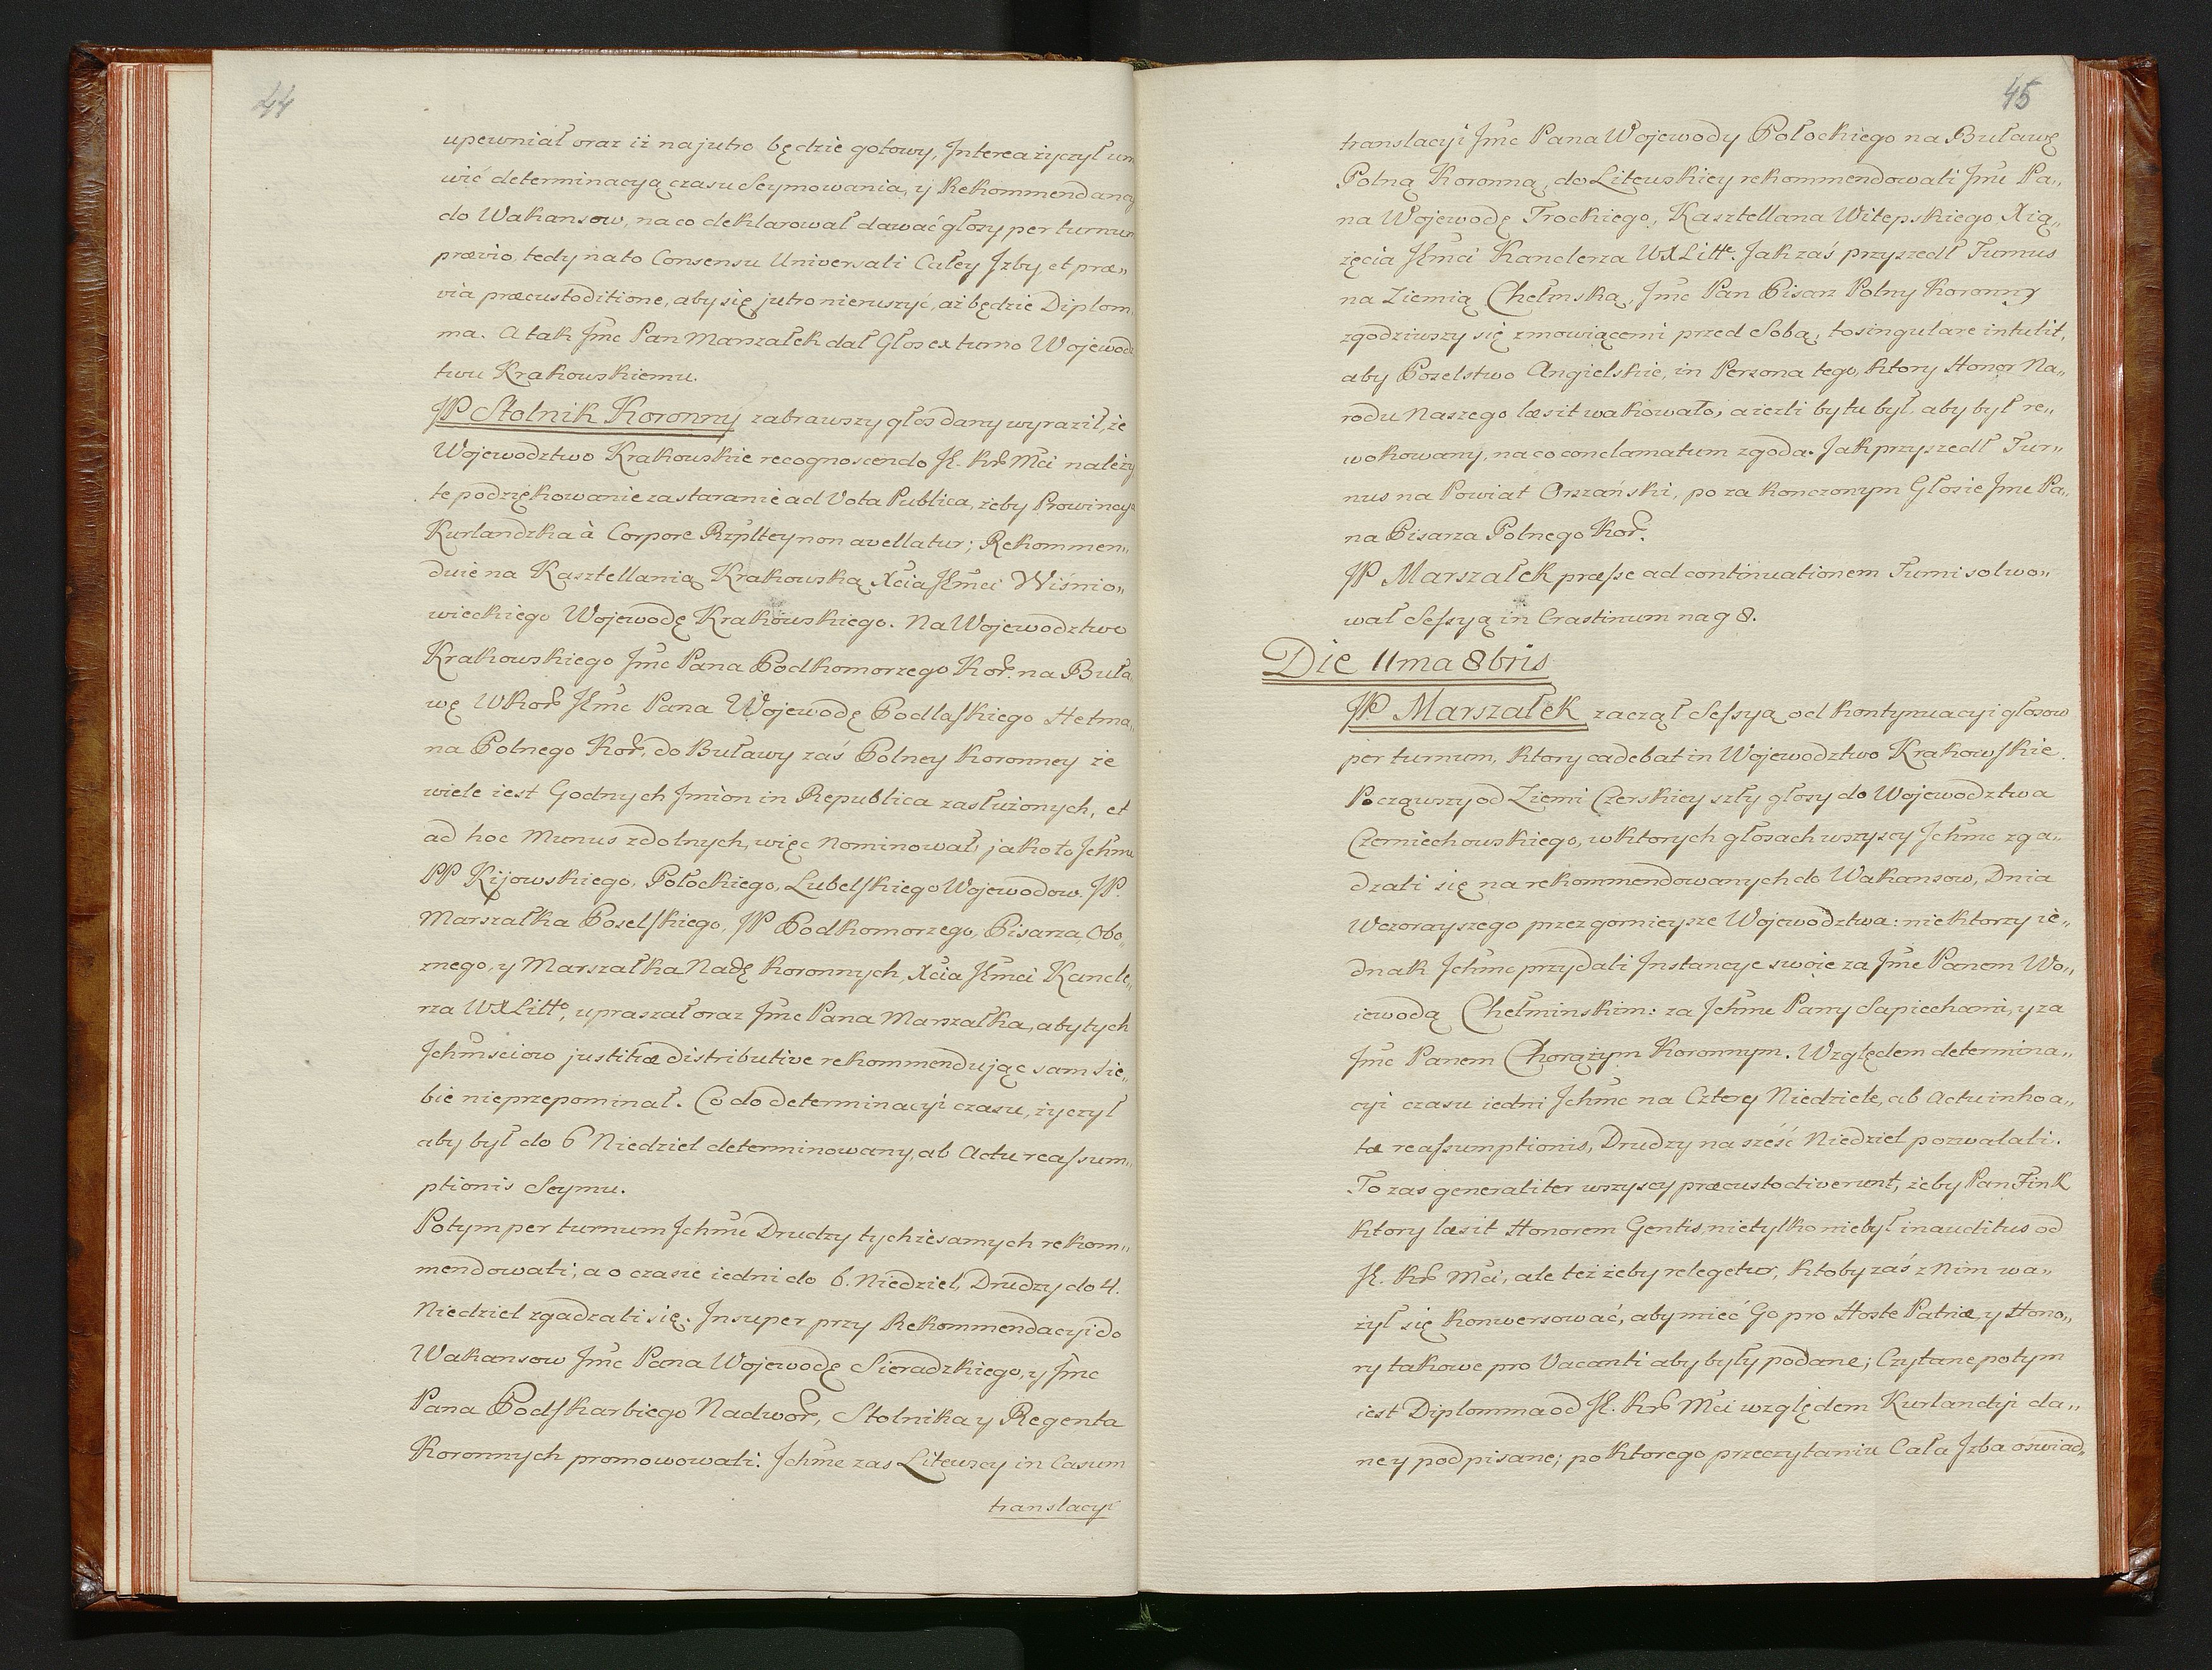 44
upewniał oraz iż na jutro będzie gotowy, Interea życzył um
wić determinacyą czasu Seymowania, y Rekommendancy
do Wakansow, na co deklarował dawać głosy per turnum
prævio, tedy na to Consensu Universali Całey Izby, et præ„
via præcustoditione, aby się jutro nieruszyć, aż będzie Diplom„
ma. A tak Jmc Pan Marszałek dał Głos ex turno Wojewodz
twu Krakowskiemu.
JP Stolnik Koronny zabrawszy głos dany wyraził, że
Wojewodztwo Krakowskie recognoscendo JK. Kr Mci należy
te podziękowanie za staranie ad Vota Publica, żeby Prowincya
Kurlandzka à Corpore Rzpltey non avellatur; Rekommen„
duie na Kasztellanią Krakowską Xcia JKmci Wiśnio„
wieckiego Wojewodę Krakowskiego. Na Wojewodztwo
Krakowskiego Jmc Pana Podkomorzego Kor. na Buła„
wę WKor JKmc Pana Wojewodę Podlaskiego Hetma„
na Polnego Kor, do Buławy zaś Polney Koronney że
wiele iest Godnych Jmion in Republica zasłużonych, et
ad hoc Munus zdolnych, więc Nominował, jako to Jchmc
PP Kijowskiego, Połockiego, Lubelskiego Wojewodow. JP.
Marszałka Poselskiego, JP Podkomorzego, Pisarza, Obo„
znego, y Marszałka Nadę Koronnych, Xcia JKmci Kancle„
rza WXLitto, upraszał oraz Jmc Pana Marszałka, aby tych
Jchmsciow justitiæ distributive rekommendując sam sie„
bie nieprzepominał. Co do determinacyi czasu, życzył
aby był do 6 Niedziel determinowany, ab Actu reassum„
ptionis Seymu.
Potym per turnum Jchmc Drudzy tychże samych rekom„
mendowali; a o czasie iedni do 6. Niedziel, Drudzy do 4.
Niedziel zgadzali się. Insuper przy Rekommendacyi do
Wakansow Jmc Pana Wojewodę Sieradzkiego, y Jmc
Pana Podskarbiego Nadwor, Stolnika y Regenta
Koronnych promowowali. Jchmc zas Litewscy in Casum
translacyi
45
translacyi Jmc Pana Wojewody Połockiego na Buławę
Polną Koronną, do Litewskiey rekommendowali Jmc Pa„
na Wojewodę Trockiego, Kasztellana Witepskiego Xią„
żęcia JKmci Kanclerza WXLitte. Jak zaś przyszedł Turnus
na Ziemią Chełmską, Jmc Pan Pisarz Polny Koronny
zgodziwszy się z mowiącemi przed Sobą, to singulare intulit,
aby Poselstwo Angielskie, in Persona tego, ktory Honor Na„
rodu Naszego læsit wakowało; a ieżli by tu był, aby był re„
wokowany, na co conclamatum zgoda. Jak przyszedł Tur„
nus na Powiat Orszański, po zakonczonym Głosie Jmc Pa„
na Pisarza Polnego Kor.
JP Marszałek præsse ad continuationem Turni solwo„
wał Sessyą in Crastinum na g 8.
Die 11ma 8bris
JP. Marszałek zaczął Sessyą od kontynuacyi głosow
per turnum, ktory cadebat in Wojewodztwo Krakowskie.
Począwszy od Ziemi Czerskiey szły głosy do Wojewodztwa
Czerniechowskiego, w ktorych głosach wszyscy Jchmc zga„
dzali się na rekommendowanych do Wakansow, Dnia
Wczorayszego przez gornieysze Wojewodztwa: niektorzy ie„
dnak Jchmc przydali Instancye swoie za Jmc Panem Wo„
iewodą Chełminskim: za Jchmc Pany Sapiechami, y za
Jmc Panem Chorążym Koronnym. Względem determina„
cyi czasu iedni Jchmc na Cztery Niedziele, ab Actu inhoa„
tæ reassumptionis, Drudzy na sześć Niedziel pozwalali.
To zas generaliter wszyscy præcustodiverunt, żeby Pan Fink
ktory læsit Honorem Gentis, nietylko niebył inauditus od
JK. Kr Mci, ale też żeby relegetur, ktoby zaś z Nim wa„
żył się konwersować, aby mieć Go pro Hoste Patriæ, y Hono„
ry takowe pro Vacanti aby były podane; Czytane potym
iest Diplomma od JK. Kr Mci względem Kurlandyi da„
ney podpisane; po ktorego przeczytaniu Cała Izba oświad„